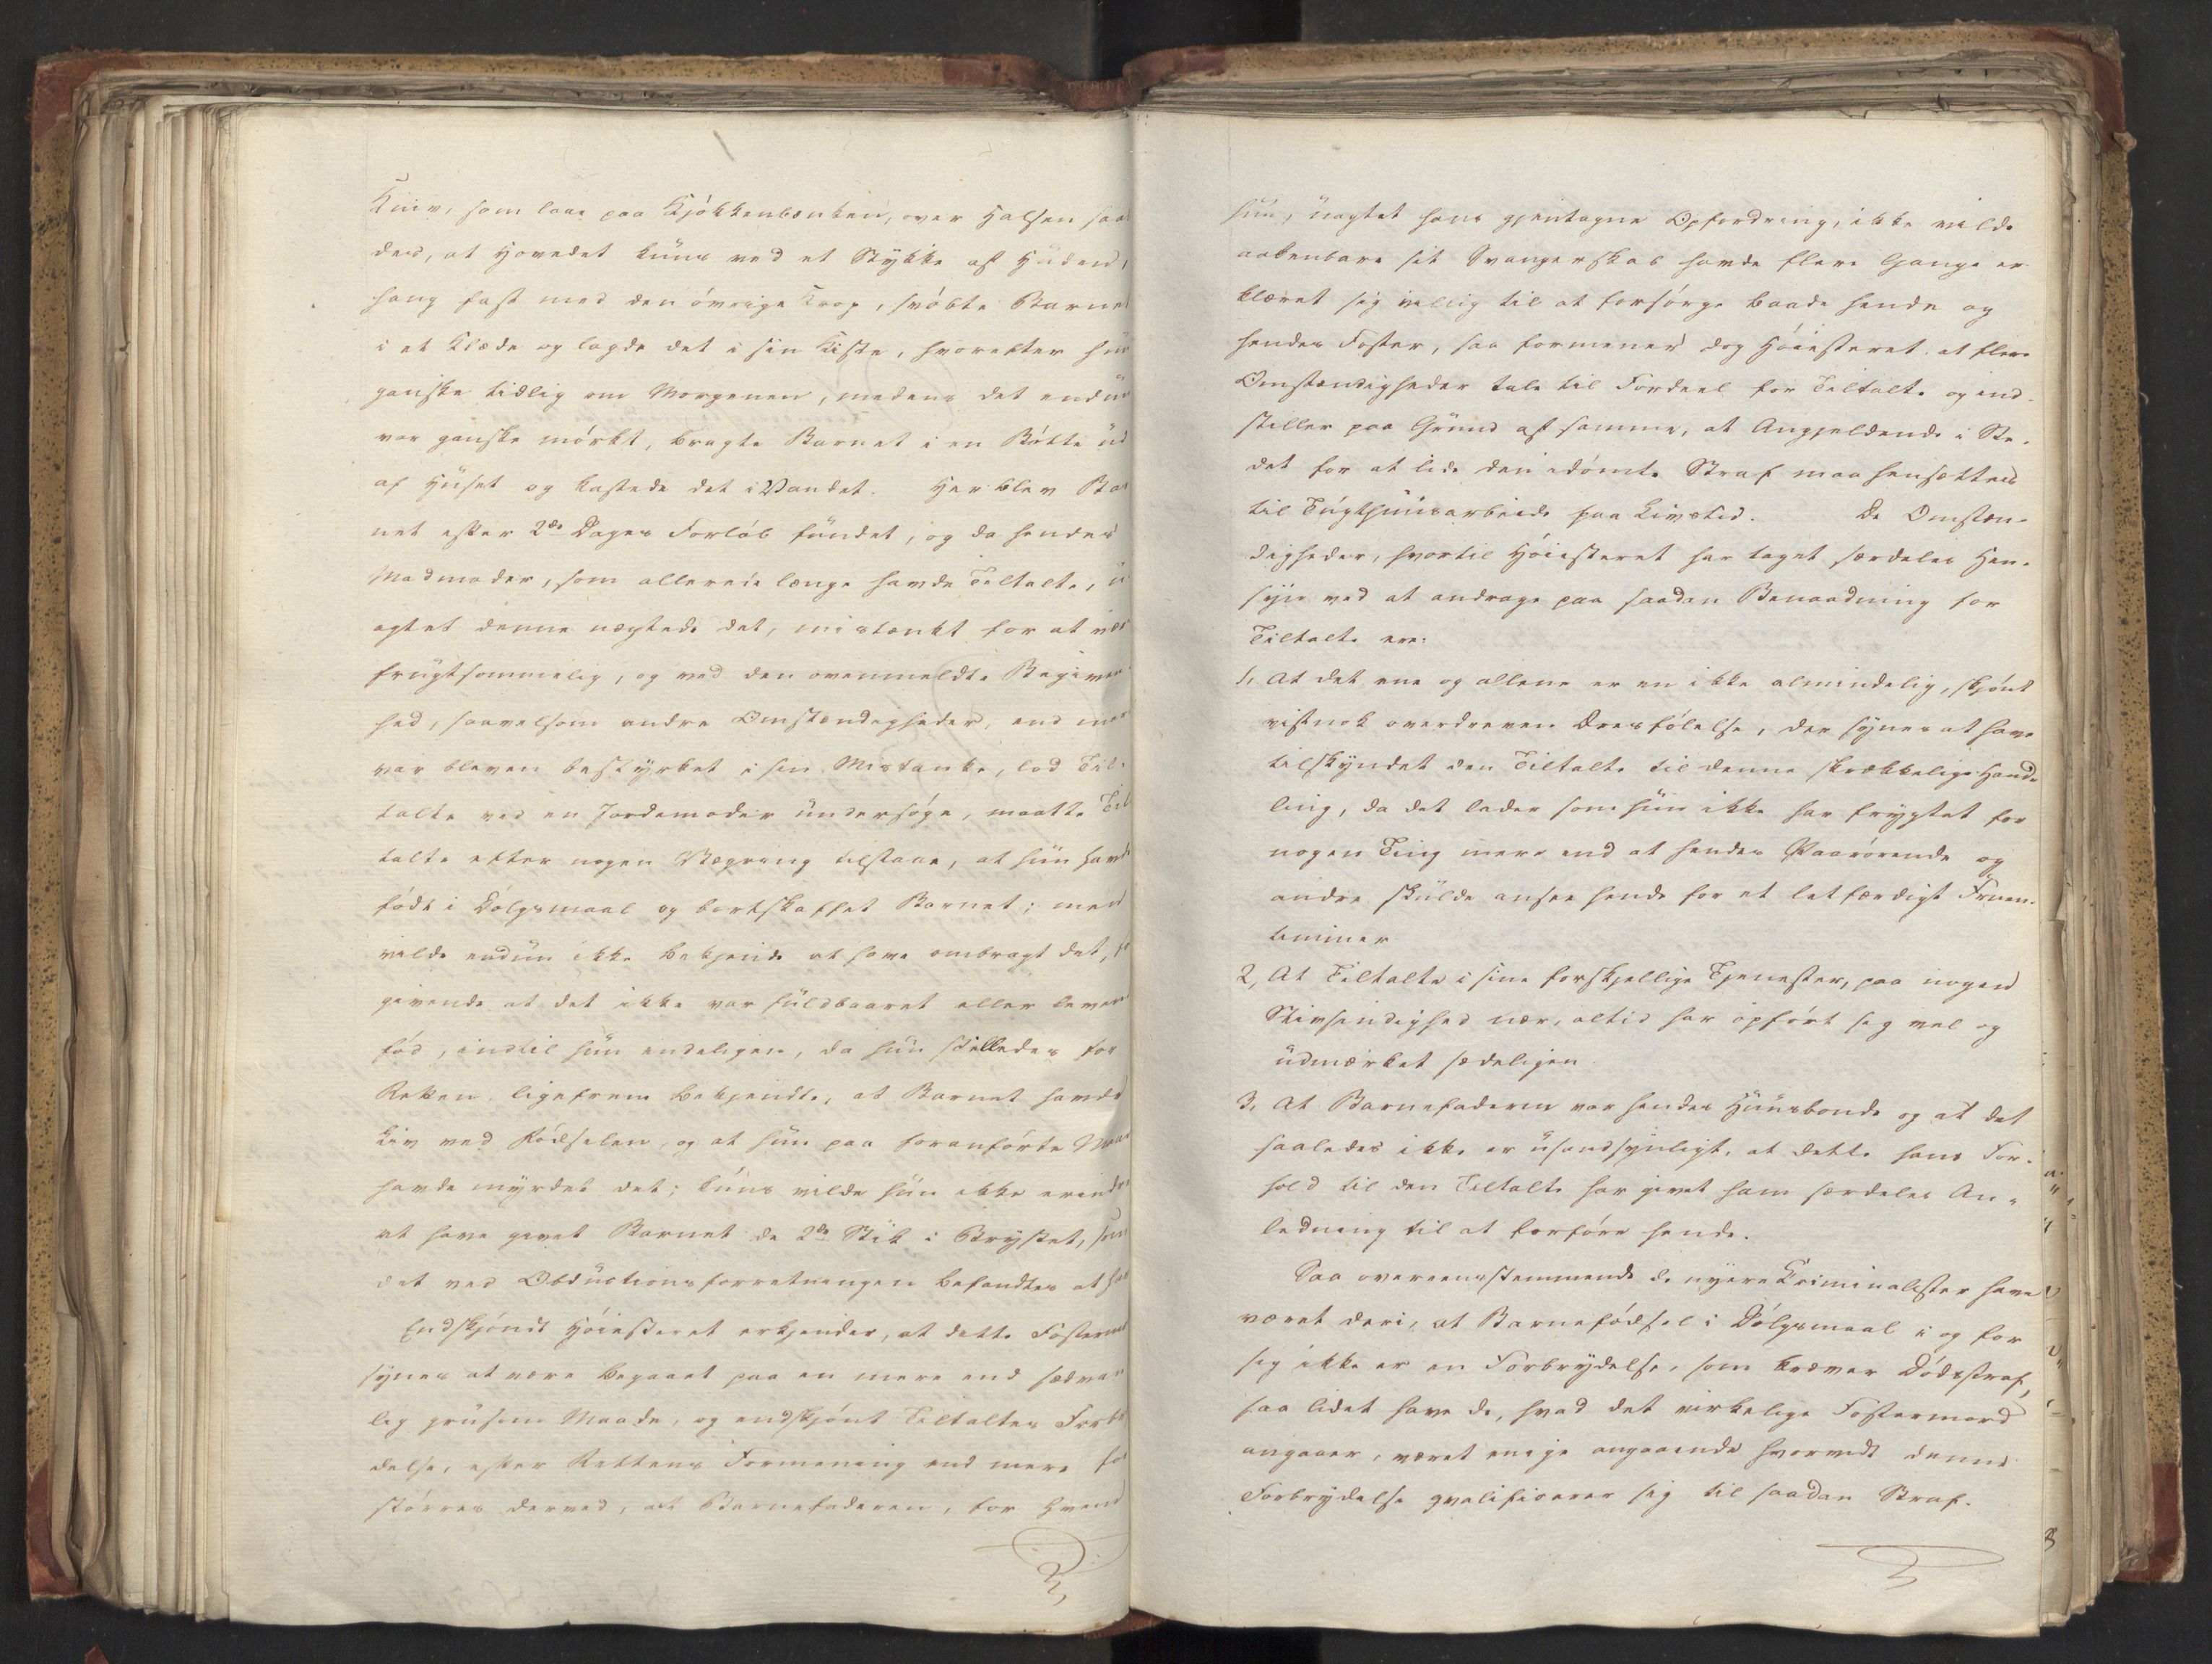 Kniv, som laae paa Kjökkenbænken, over Halsen saa
des, at Hovedet kuns ved et Stykke af Huden,
hang fast med den övrige Krop, svöbte Barnet
i et Klæde og lagde det i sin Kiste, hvorefter hun
ganske tidlig om Morgenen, medens det endnu
var ganske mörkt, bragte Barnet i en Bötte ud
af Huset og kastede det i Vandet. Her blev Bar
net efter 2de Dages Forlöb fundet, og da hendes
Madmoder, som allerede længe havde Tiltalte, u
agtet denne nægtede det, mistænkt for at være
frugtsommelig, og ved den ovenmeldte Begiven
hed, saavelsom andre Omstændigheder, end mere
var bleven bestyrket i sin Mistanke, lod Til-
talte ved en Jordemoder undersöge, maatte Til
talte efter nogen Vægring tilstaae, at hun havde
födt i Dölgsmaal og bortskaffet Barnet; men
vilde endnu ikke bekjende at have ombragt det,
givende at det ikke var fuldbaaret eller levende
fod, indtil hun endeligen, da hun stilledes for
Retten, ligefrem bekjendte, at Barnet havde
Liv ved Födselen, og at hun paa foranförte Maade
havde myrdet det; kuns vilde hun ikke erindre
at have givet Barnet de 2de Stik i Brystet, som
det ved Obductionsforretningen befandtes at have
Endskjöndt Höiesteret erkjender, at dette Fostermord
synes at være begaaet paa en mere end sædvan
lig grusom Maade, og endskjönt Tiltaltes Forbry
delse, efter Rettens Formening end mere for
störres derved, at Barnefaderen, for hvem
hun, uagtet hans gjentagne Opfordring, ikke vilde
aabenbare sit Svangerskab havde flere Gange er-
klæret sig villig til at forsörge baade hende og
hendes Foster, saa formener dog Höiesteret at flere
Omstændigheder tale til Fordeel for Tiltalte og ind-
stiller paa Grund af samme, at Angjeldende i Ste-
det for at lide den idömte Straf maa hensættes
til Tugthuusarbeide paa Livstid. De Omstæn-
digheder, hvortil Höiesteret har taget særdeles Hen-
syn ved at andrage paa saadan Benaadning for
Tiltalte ere:
1, At det ene og allene er en ikke almindelig, skjönt
vistnok overdreven Æresfölelse, der synes at have
tilskyndet den Tiltalte til denne skrækkelige Hand-
ling, da det lader som hun ikke har frygtet for
nogen Ting mere end at hendes Paarörende og
andre skulde ansee hende for et letfærdigt Fruen-
timmer
2, At Tiltalte i sine forskjellige Tjenester, paa nogen
Stivsindighed nær, altid har opfört sig vel og
udmærket sædeligen
3, At Barnefaderen var hendes Huusbonde og at det
saaledes ikke er usandsynligt, at dette hans For-
hold til den Tiltalte har givet ham særdeles An-
ledning til at forföre hende.
Saa overeensstemmende de nyere Criminalister have
været deri, at Barnefödsel i Dölgsmaal i og for
sig ikke er en Forbrydelse, som kræver Dödsstraf,
saa lidet have de, hvad det virkelige Fostermord
angaaer, været enige angaaende hvorvidt denne
Forbrydelse qvalificerer sig til saadan Straf.